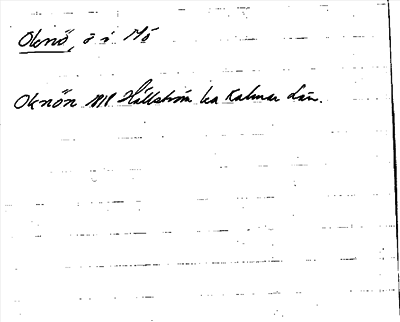 Oknö, ö i Mö
Oknön 1818 Hällström ka Kalmar Län.